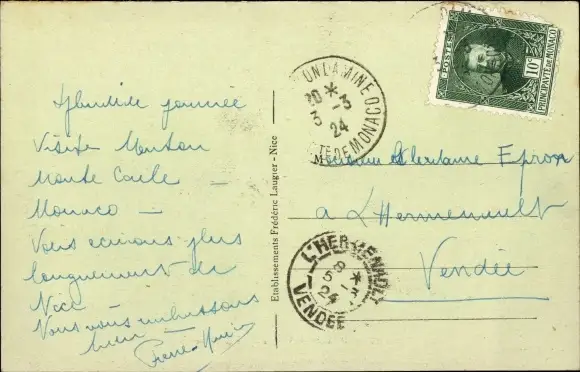 Splendide journée
Visite Menton
Monte Carlo
Monaco —
Vous écrirons plus
longuement de
Nice
Vous vous embrassons
bien
Pierre-
Etablissements Frédéric Laugier - Nice
CONDAMINE
20 *
3 -3
24
PTE DE MONACO
POSTES
10c
PRINCIPAUTÉ DE MONACO
à L'Hermenault
Vendée
L'HERMENAULT
8 *
5 -3
24
VENDÉE